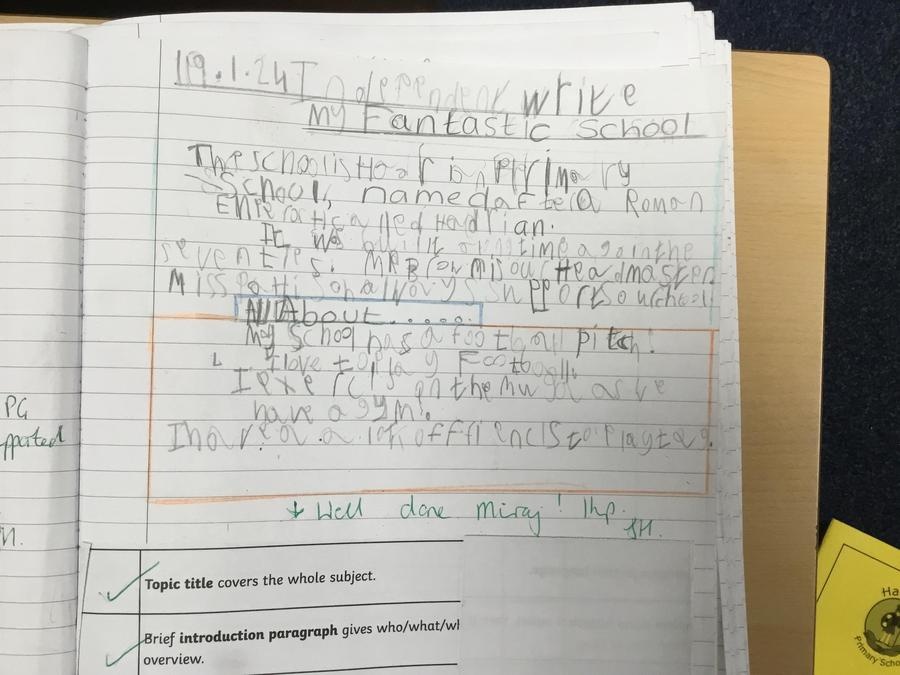 19.1.24 Independent write
My Fantastic School
The school is Hadrian Primary
School, named after a Roman
called Hadrian.
It was built long time ago in the
seventies. MR Brown is our Headmaster.
Miss always support our school
All About.....
My School has a football pitch!
I love to play Football.
I on the muga as we
have a gym!.
I have a a lot of friends to play tag.
Well done Miraj! 1hp.
JH.
Topic title covers the whole subject.
Brief introduction paragraph gives who/what/wh
overview.
PG
pported
n.
Ha
Primary Scho